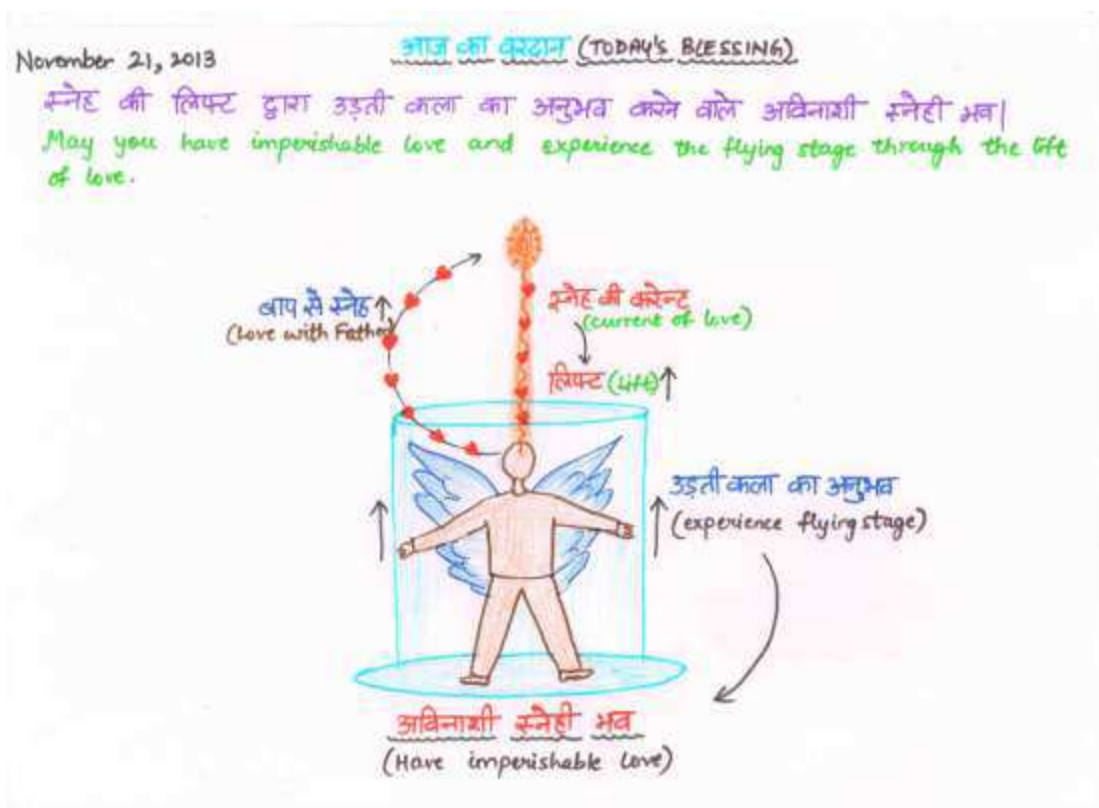 November 21, 2013
आज का वरदान (TODAY'S BLESSING)
स्नेह की लिफ्ट द्वारा उड़ती कला का अनुभव करने वाले अविनाशी स्नेही भव|
May you have imperishable love and experience the flying stage through the lift
of love.
बाप से स्नेह
(Love with Father)
स्नेह की करेन्ट
(current of love)
लिफ्ट (Lift)
उड़ती कला का अनुभव
(experience flying stage)
अविनाशी स्नेही भव
(Have imperishable love)